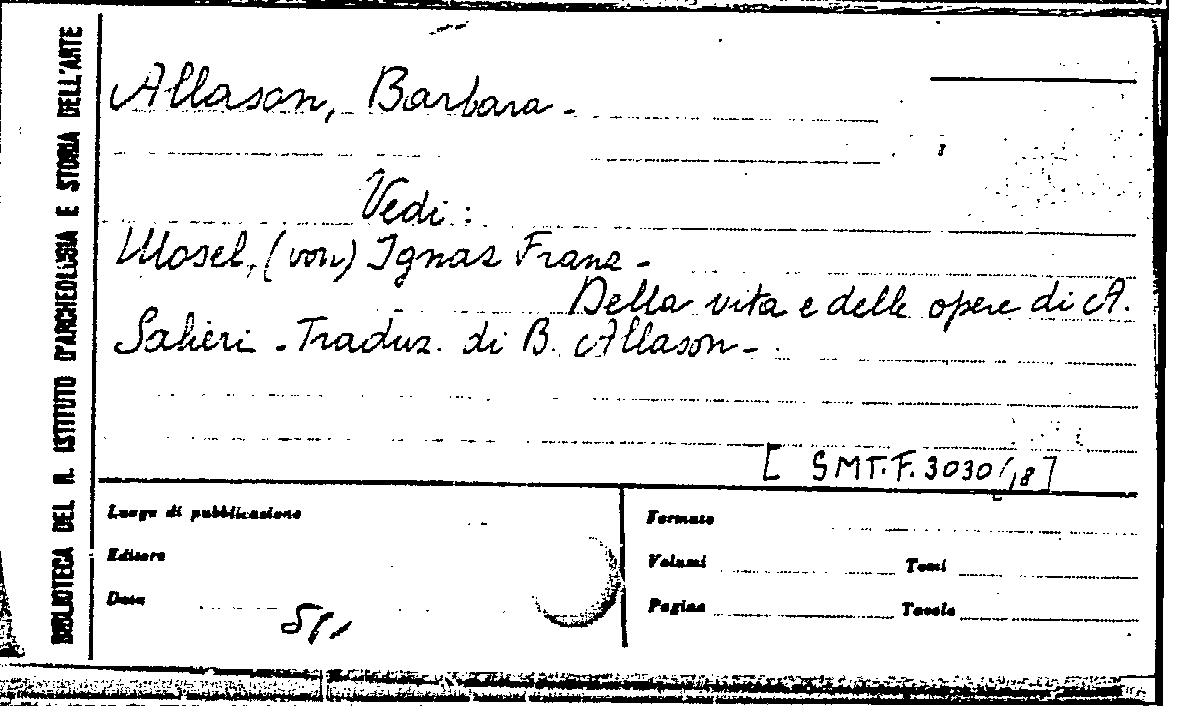 BIBLIOTECA DEL R. ISTITUTO D'ARCHEOLOGIA E STORIA DELL'ARTE
Allason, Barbara -
Vedi :
Mosel, (von) Ignaz Franz -
Della vita e delle opere di A.
Salieri - Traduz. di B. Allason -
[ SMT.F. 3030/,8]
Luogo di pubblicazione
Editore
Data
Formato
Volumi Tomi
Pagine Tavole